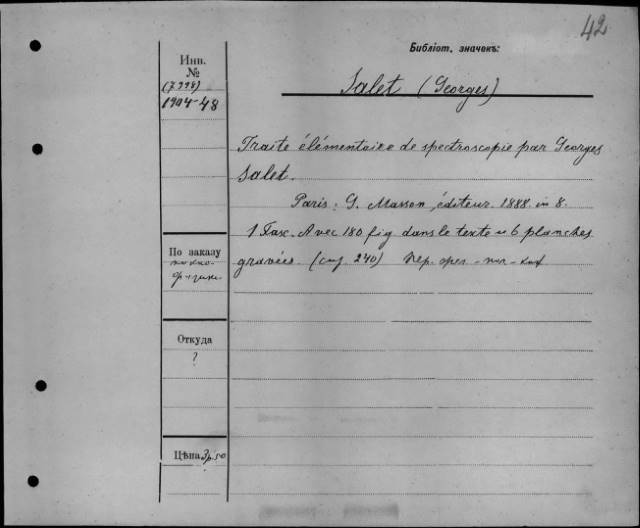 42
Библіот. значекъ:
Инв.
№
(7998)
1904-48
Salet (Georges)
Traité élémentaire de spectroscopie par Georges
Salet.
Paris: G. Masson, éditeur. 1888. in 8.
1 Fasc. Avec 180 fig dans le texte et 6 planches
gravées. (стр. 240) Пер.
По заказу
Откуда
?
Цѣна 3р.50